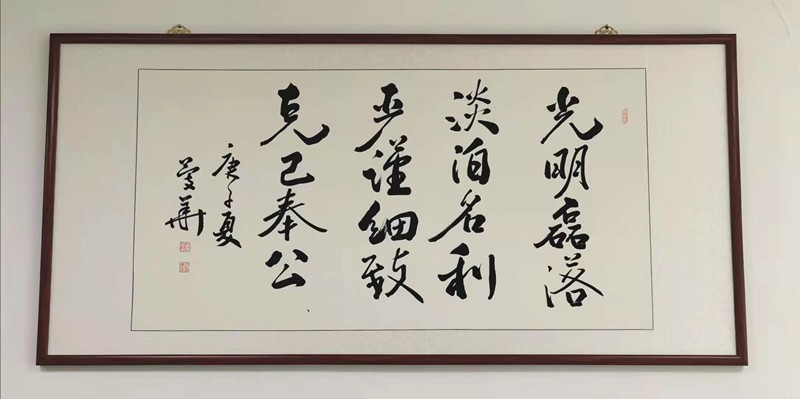 光明磊落
淡泊名利
严谨细致
克己奉公
庚子夏